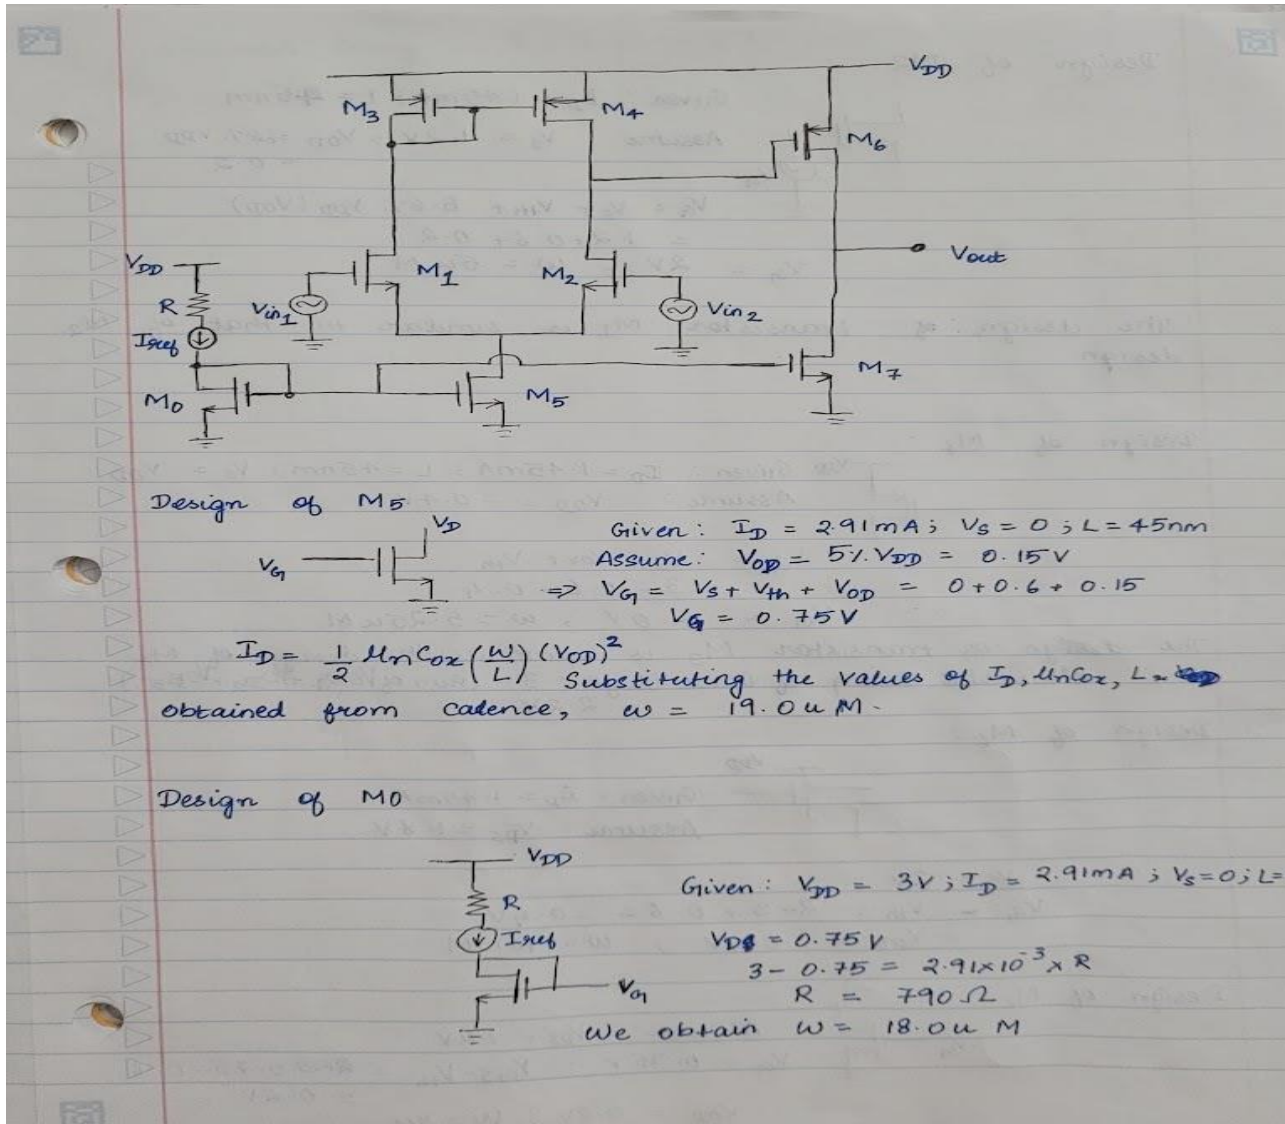 VDD
M3
M4
M6
VDD
M1
M2
Vout
R
Vin1
Vin2
Iref
M0
M5
M7
Design of M5
VD
VG
Given: ID = 2.91mA; VS = 0; L = 45nm
Assume: VOD = 5% VDD = 0.15V
⇒ VG = VS + Vth + VOD = 0 + 0.6 + 0.15
VG = 0.75V
ID = 1/2 UnCox (W/L) (VOD)²
Substituting the values of ID, UnCox, L
obtained from cadence, w = 19.0 u M.
Design of M0
VDD
Given: VDD = 3V; ID = 2.91mA; VS=0; L=
R
Iref
VDS = 0.75V
3 - 0.75 = 2.91x10⁻³ x R
VG
R = 790 Ω
We obtain W = 18.0 u M